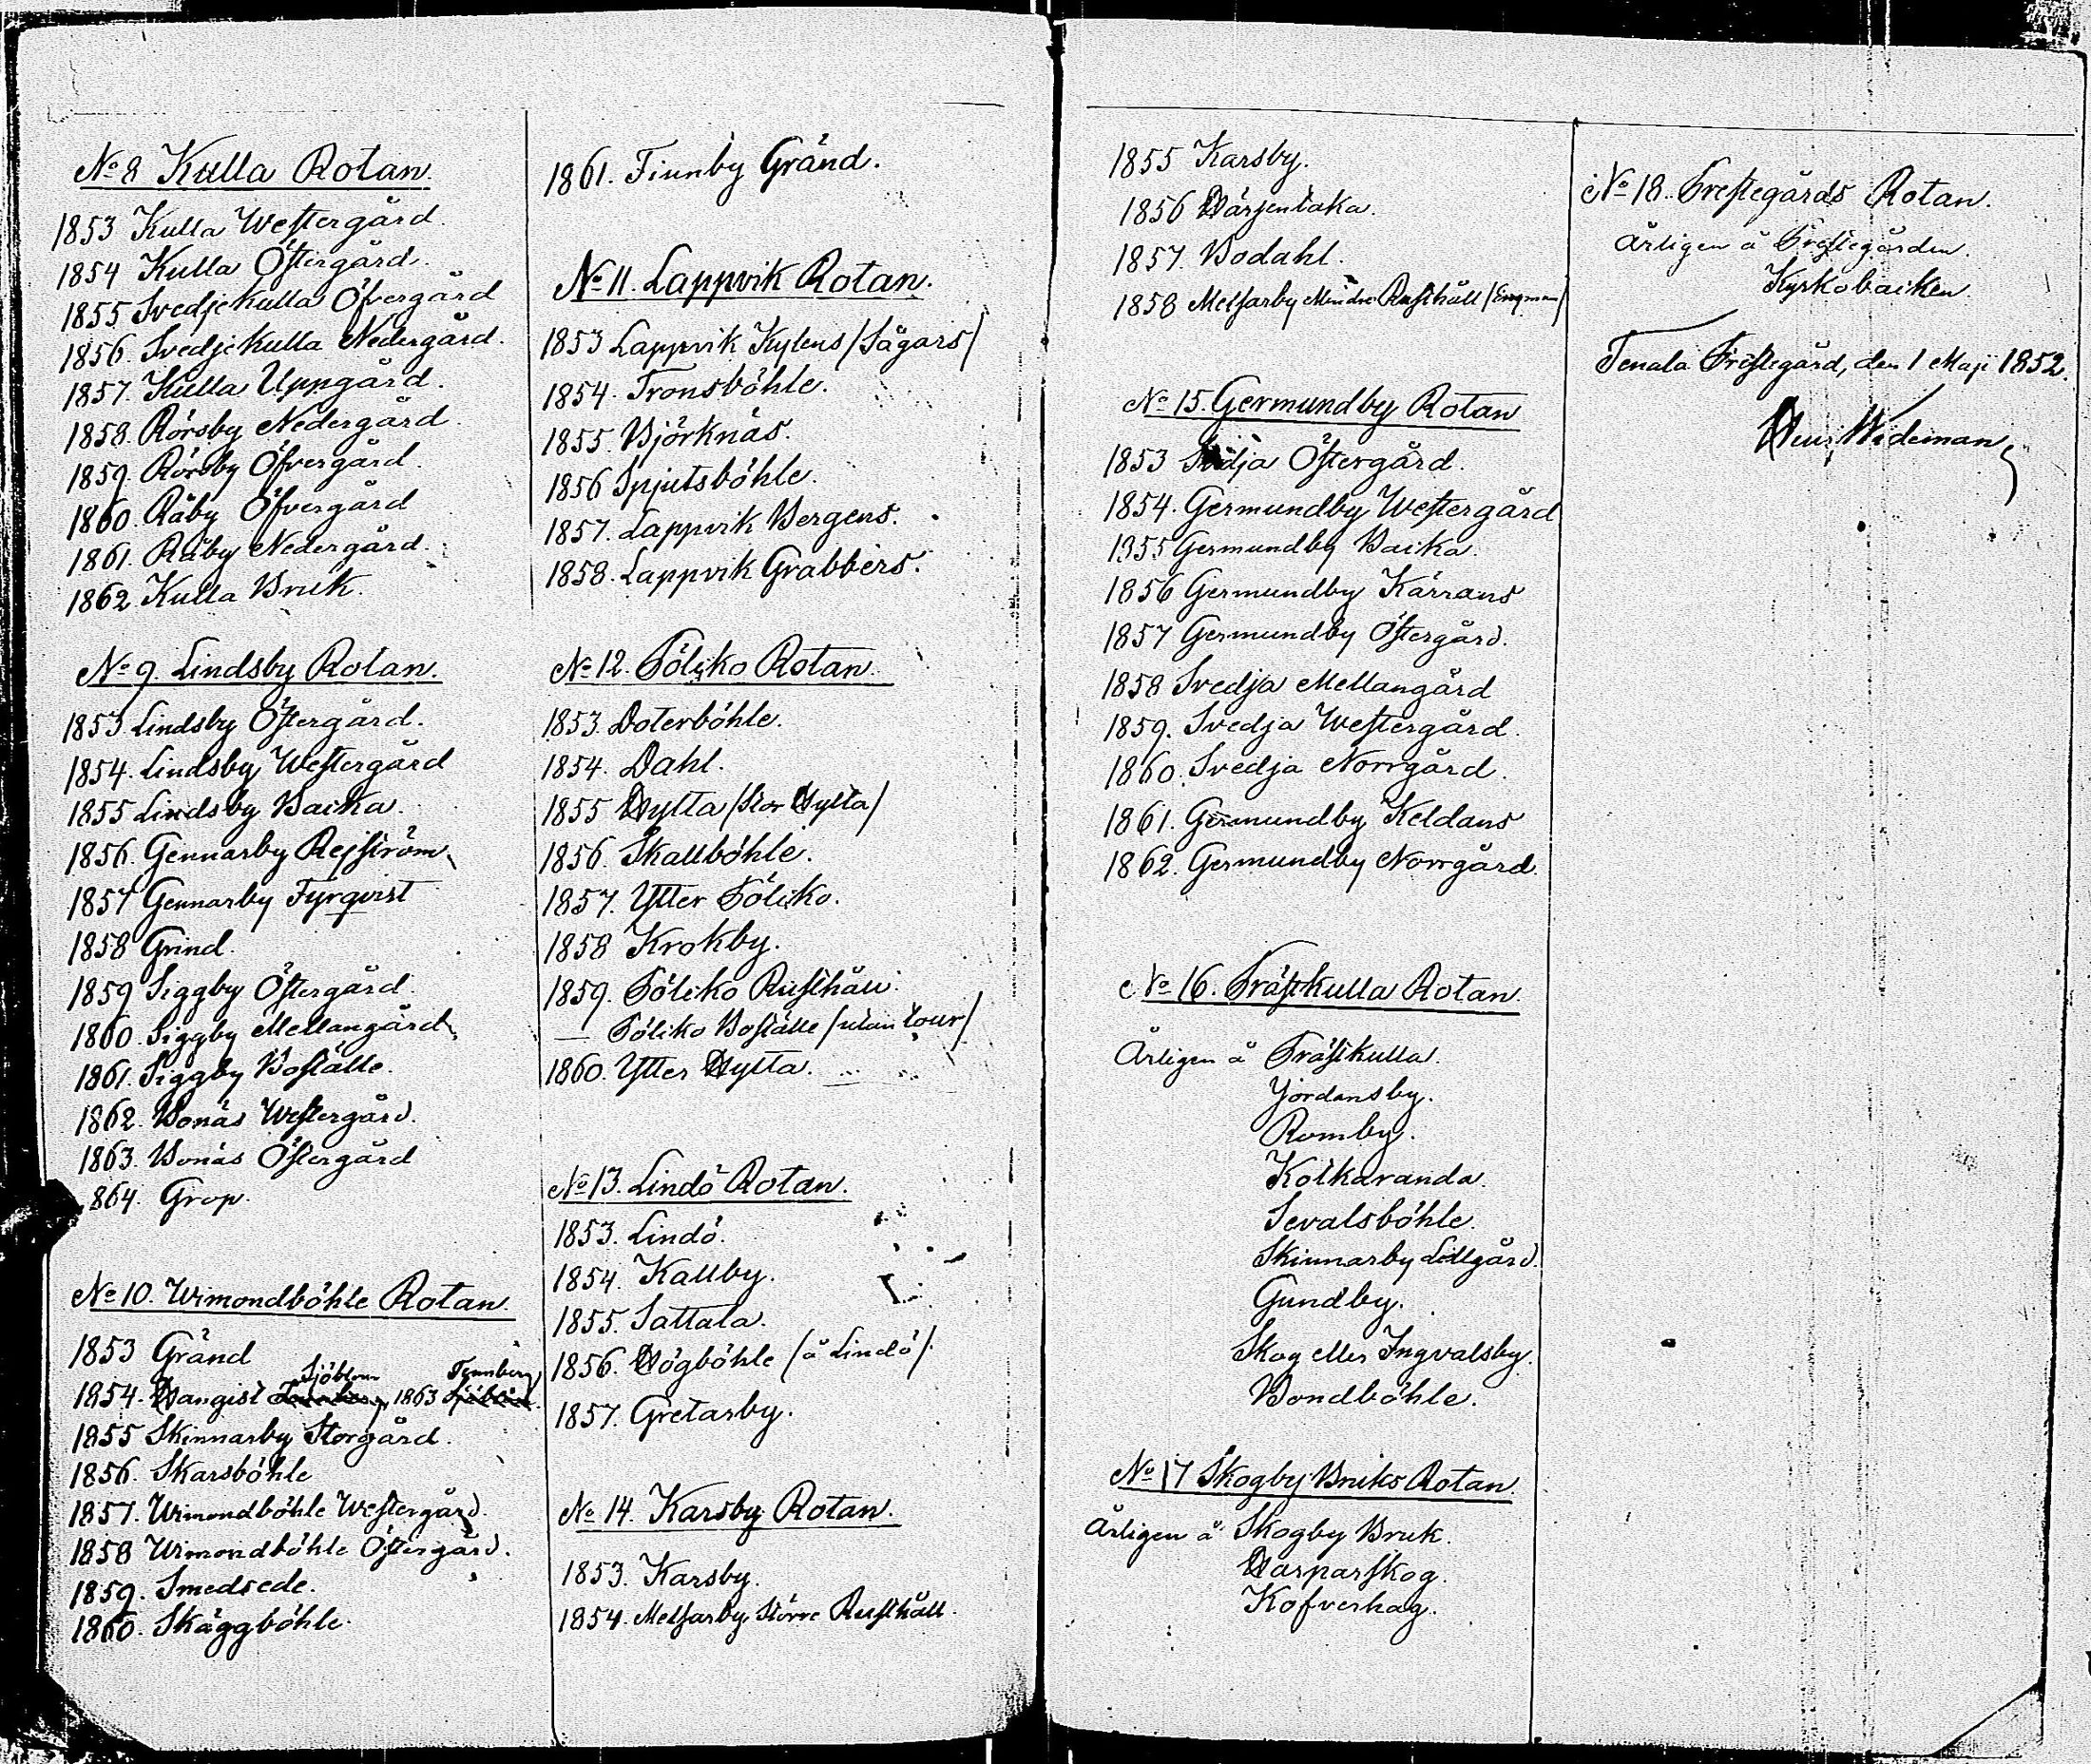 No 8 Kulla Rotan.
1853 Kulla Westergård.
1854 Kulla Östergård.
1855 Svedjekulla Öfvergård
1856. Svedjekulla Nedergård.
1857. Kulla Uppgård.
1858. Rörsby Nedergård.
1859. Rörsby Öfvergård.
1860. Råby Öfvergård
1861. Råby Nedergård.
1862 Kulla Bruk.
No 9. Lindsby Rotan.
1853 Lindsby Östergård.
1854. Lindsby Westergård
1855 Lindsby Backa.
1856. Gennarby Rejström
1857 Gennarby Fyrqvist
1858 Grind.
1859 Siggby Östergård.
1860. Siggby Mellangård
1861. Siggby Boställe.
1862. Bonäs Westergård.
1863. Bonäs Östergård
1864. Grop.
No 10. Wimondböhle Rotan.
1853 Gränd
Sjöblom Tennberg
1854. Hangist Tennberg, 1863 Sjöblom.
1855 Skinnarby Storgård.
1856. Skarsböhle
1857. Wimondböhle Westergård.
1858 Wimondböhle Östergård.
1859. Smedsede.
1860. Skäggböhle.
1861. Finnby Gränd.
No 11. Lappvik Rotan.
1853 Lappvik Kylens /Sågars/
1854. Tronsböhle.
1855. Björknäs.
1856 Spjutsböhle.
1857. Lappvik Bergens.
1858. Lappvik Grabbers.
No 12. Föliko Rotan.
1853. Doterböhle.
1854. Dahl.
1855 Hytta /Stor Hytta/
1856. Skallböhle.
1857. Ytter Föliko.
1858 Krokby.
1859. Föliko Rusthåll.
— Föliko Boställe /utan tour/
1860. Ytter Hytta.
No 13. Lindö Rotan.
1853. Lindö.
1854. Kallby.
1855. Sattala.
1856. Högböhle /å Lindö/.
1857. Gretarby.
No 14. Karsby Rotan.
1853. Karsby.
1854. Melsarby Större Rusthåll.
1855 Karsby.
1856 Härjentaka.
1857. Bodahl.
1858 Melsarby Mindre Rusthåll /Engman/
No 15. Germundby Rotan
1853 Svedja Östergård.
1854. Germundby Westergård
1855 Germundby Backa.
1856 Germundby Kärrans
1857 Germundby Östergård.
1858 Svedja Mellangård
1859. Svedja Westergård.
1860. Svedja Norrgård.
1861. Germundby Keldans
1862. Germundby Norrgård.
No 16. Prästkulla Rotan.
Årligen å Prästkulla.
Jordansby.
Romby.
Kolkaranda.
Sevalsböhle.
Skinnarby Lillgård.
Gundby.
Skog eller Ingvalsby.
Bondböhle.
No 17 Skogby Bruks Rotan.
Årligen å Skogby Bruk.
Harparskog.
Kofverhag.
No 18. Prestegårds Rotan.
Årligen å Prestegården.
Kyrkobacken.
Tenala Prestegård, den 1 Maji 1852.
Wideman